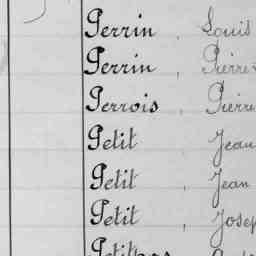 Perrin, Louis
Perrin, Pierre
Perrois, Pierre
Petit Jean
Petit, Jean
Petit, Josep